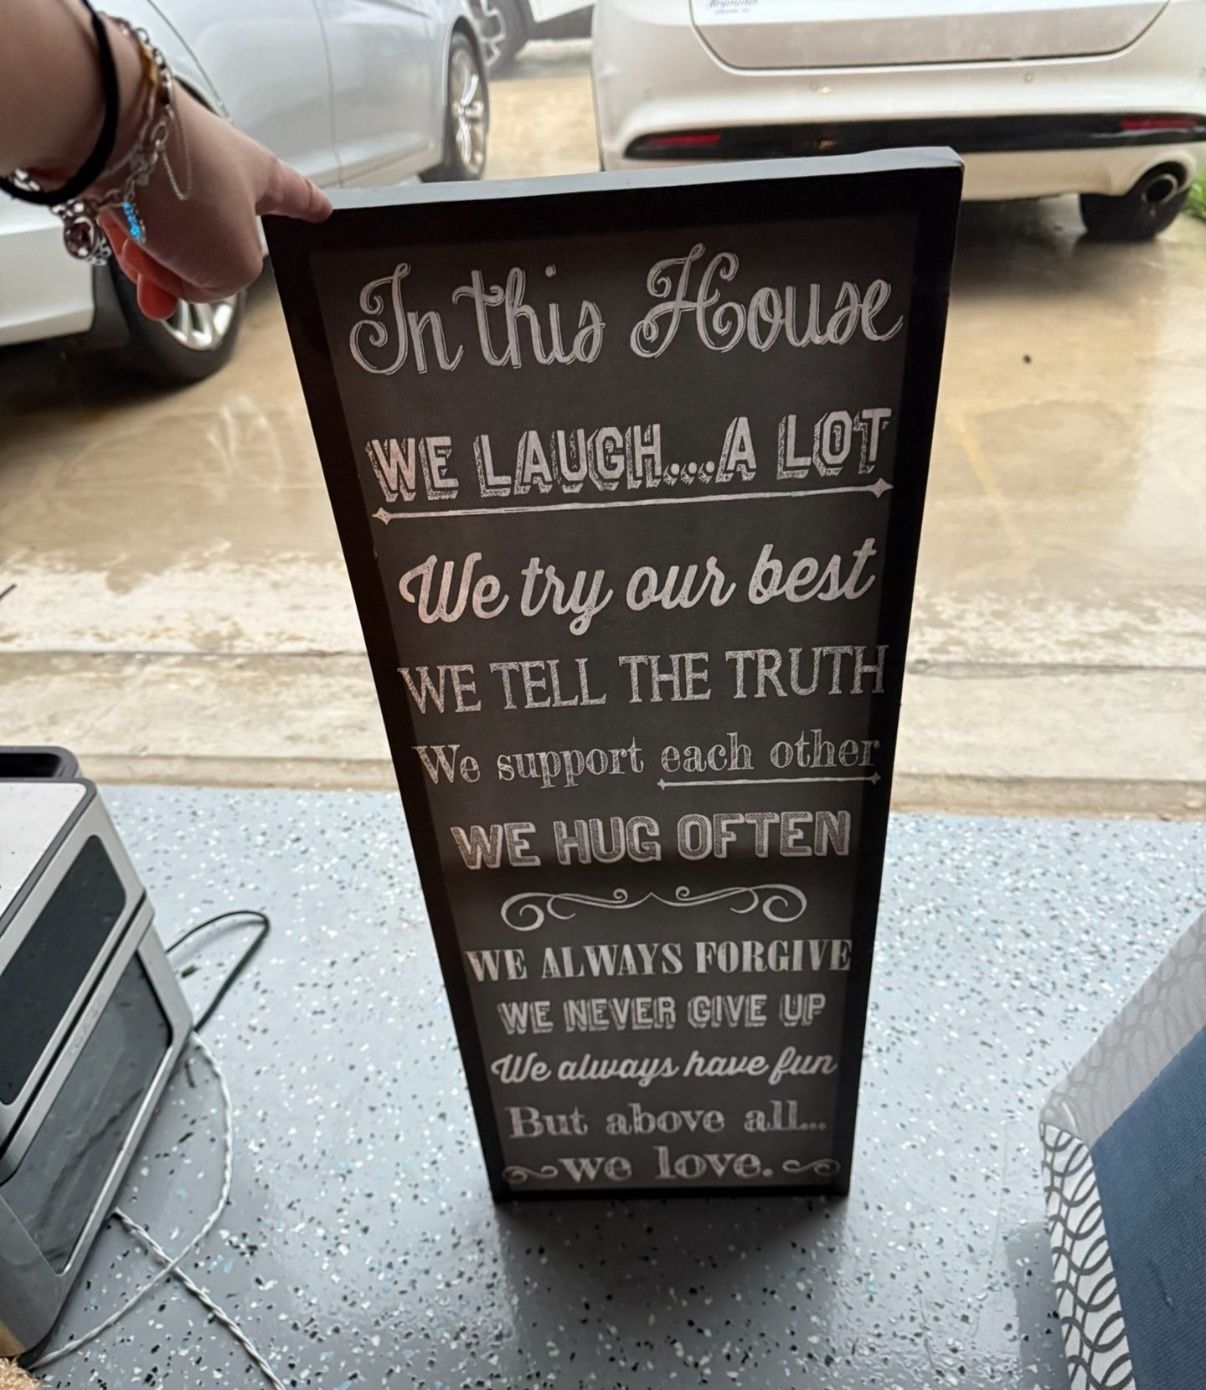 In this House
WE LAUGH...A LOT
We try our best
WE TELL THE TRUTH
We support each other
WE HUG OFTEN
WE ALWAYS FORGIVE
WE NEVER GIVE UP
We always have fun
But above all...
we love.